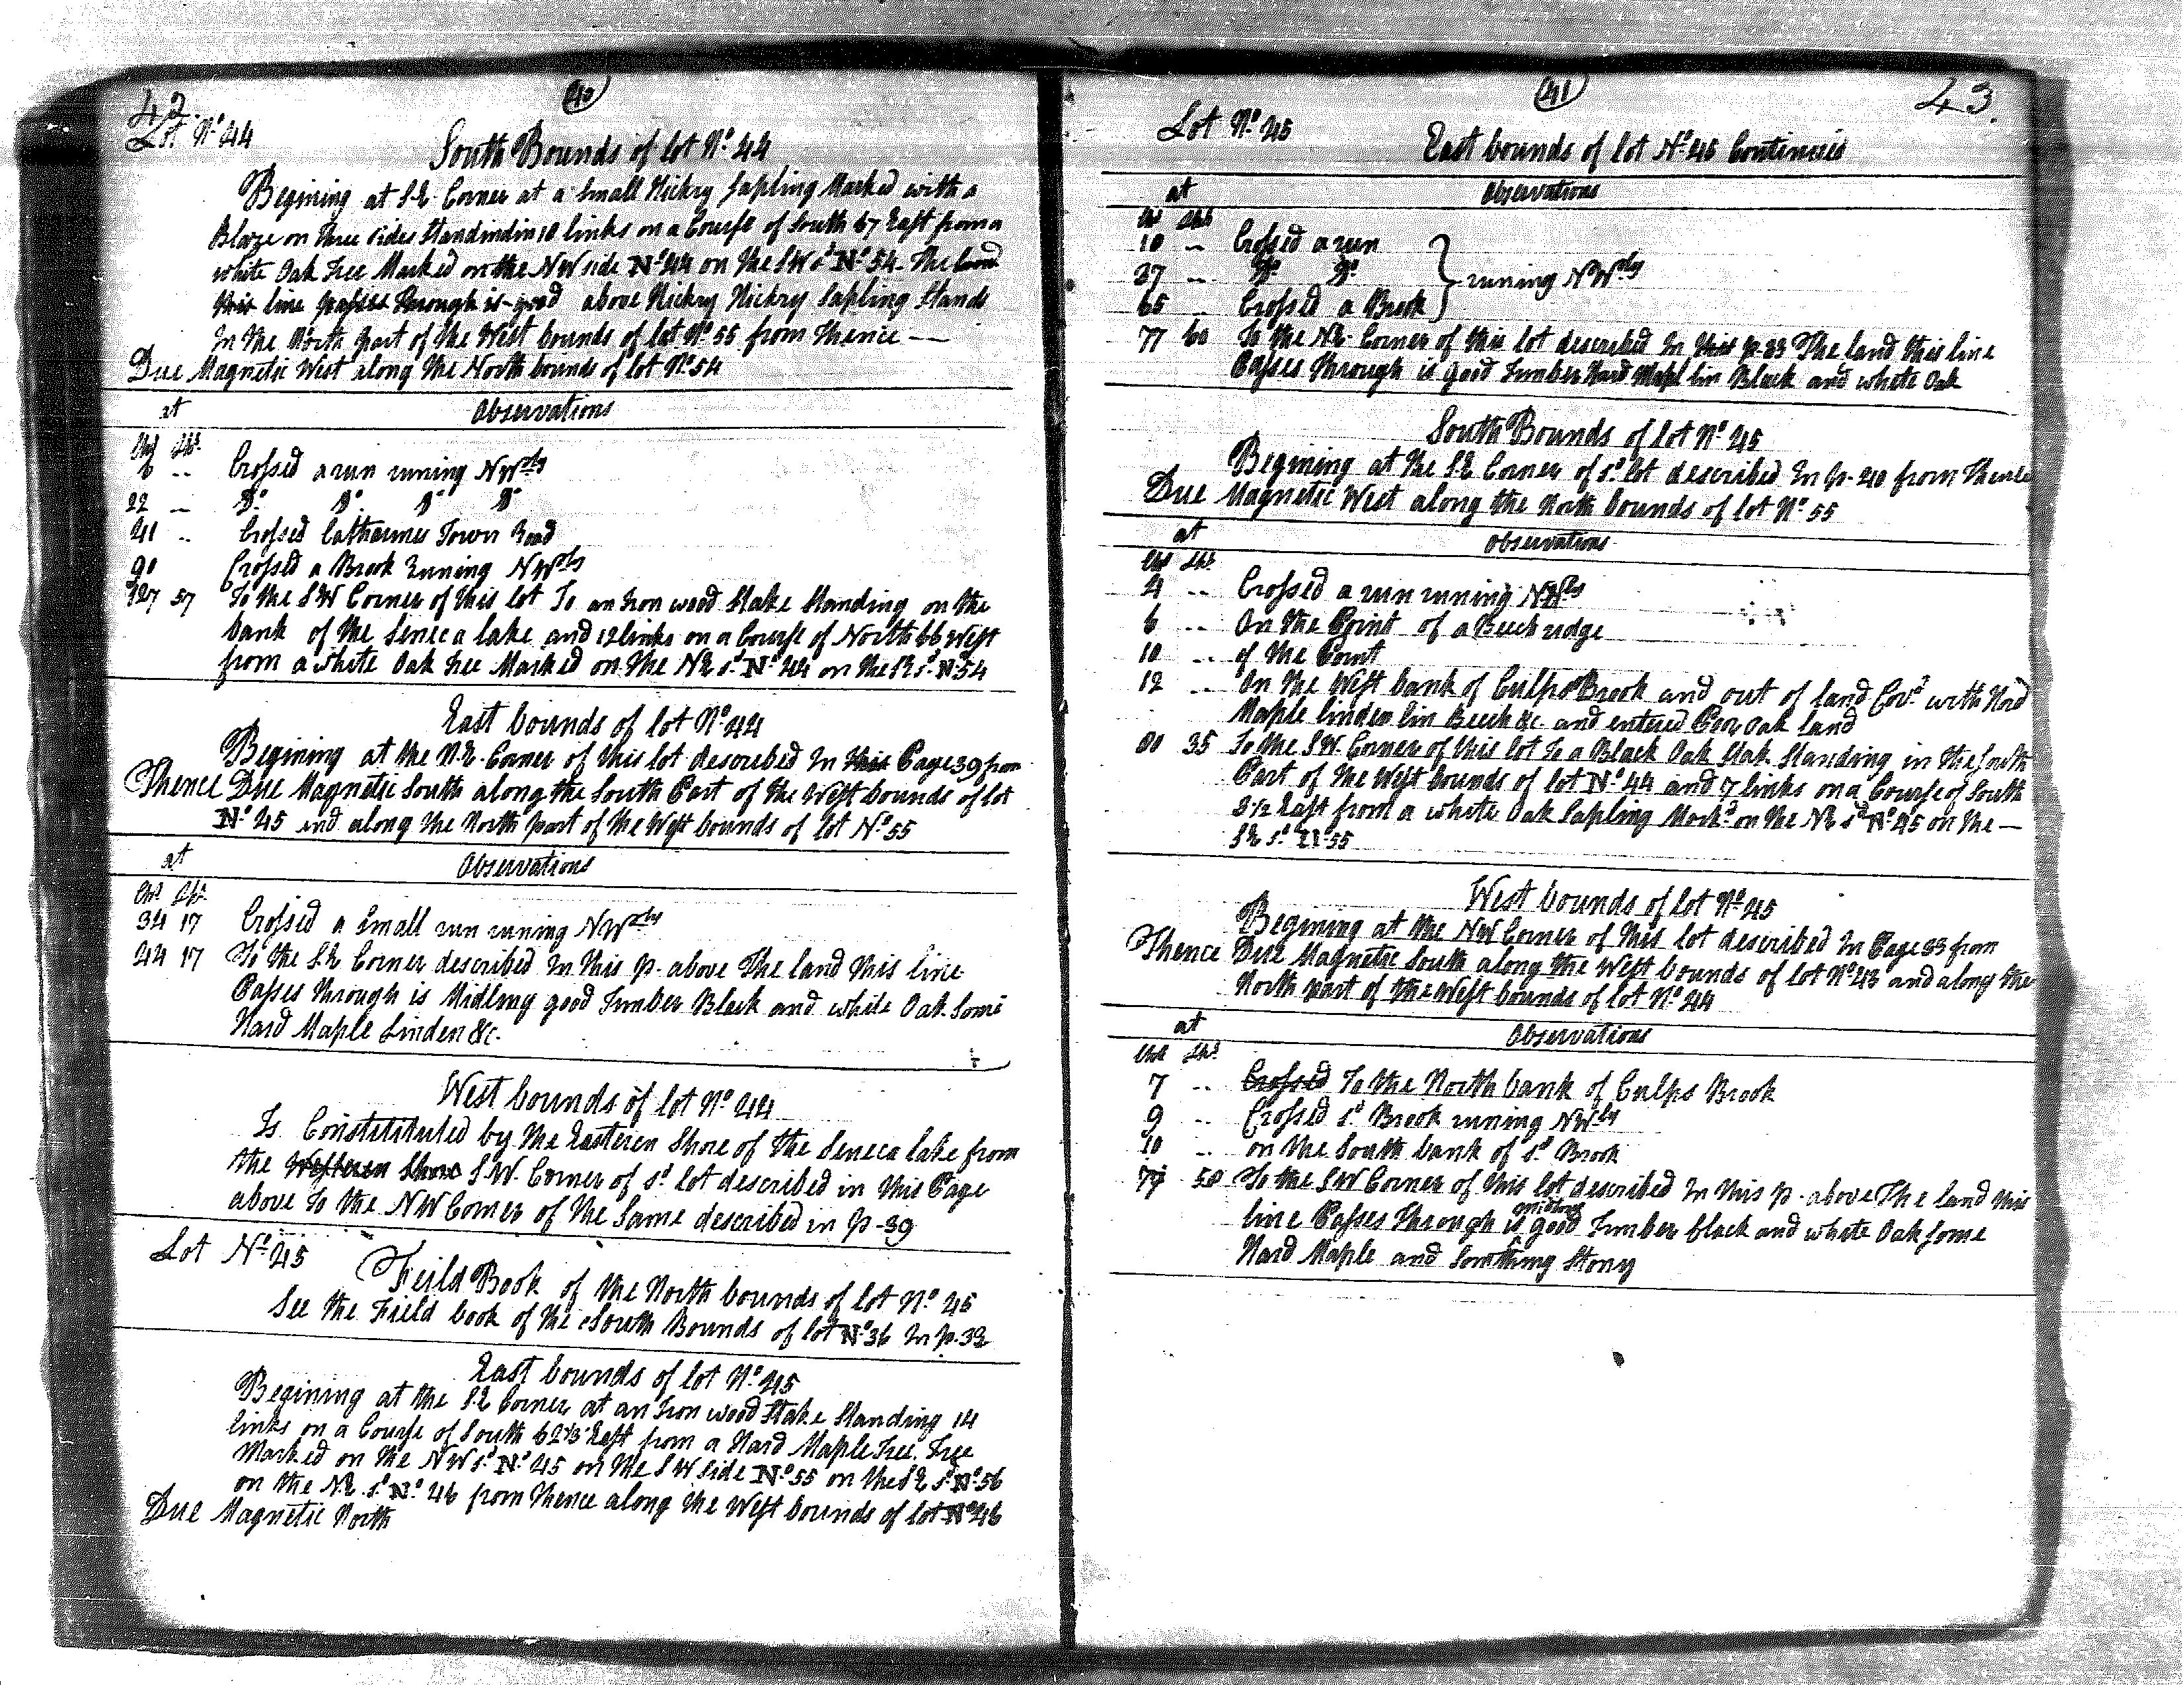 42. (40)
Lot Nº 44
South Bounds of lot Nº 44
Begining at S.E. Corner at a Small Hickry Sapling Marked with a
Blaze on three sides Standindin 10 links on a Course of South 67 East from a
white Oak Tree Marked on the NW side Nº 44 on the SW sd Nº 54. The
line passes through is good above Hickry Hickry Sapling Stands
In the North part of the West bounds of lot Nº 55 from Thence —
Due Magnetic West along the North bounds of lot Nº 54
at Observations
Chs Lks
6 .. Crossed a run runing NWrly
22 — Dº Dº Dº Dº
41 .. Crossed Catharines Town Road
90 Crossed a Brook Runing NWrly
127 57 To the SW Corner of this lot To an Iron wood Stake Standing on the
bank of the Seneca lake and 12 links on a Course of North 66 West
from a white Oak tree Marked on the NE sd Nº 44 on the SE sd Nº 54
East bounds of lot Nº 44
Begining at the N.E. Corner of this lot described In this Page 39 from
Thence Due Magnetic South along the South Part of the West bounds of lot
Nº 45 and along the North part of the West bounds of lot Nº 55
at Observations
Chs Lks
34 17 Crossed a Small run runing NWrly
44 17 To the S.E. Corner described In this p. above The land this line
Passes through is Midling good Timber Black and white Oak Some
Hard Maple Linden &c.
West bounds of lot Nº 44
Is Constitituted by the Easteren Shore of the Seneca lake from
the Westeren Shore S.W. Corner of sd lot described in this Page
above to the NW Corner of the Same described in p-39
Lot Nº 45 Feild Book of the North bounds of lot Nº 45
See the Field book of the South Bounds of lot Nº 36 In p. 32
East bounds of lot Nº 45
Begining at the S.E Corner at an Iron wood Stake Standing 14
links on a Course of South 62½ East from a Hard Maple Tree. Tree
Marked on the NW sd Nº 45 on the SW Side Nº 55 on the SE sd Nº 56
on the N.E. sd Nº 46 from Thence along the West bounds of lot Nº 46
Due Magnetic North
(41) 43.
Lot Nº 45
East bounds of lot Nº 45 Continued
at Observations
Chs Lks
10 — Crossed a run
37 .. Dº Dº } runing NWrly
65 .. Crossed a Brook
77 60 To the NE. Corner of this lot described In this p. 33 The land this line
Passes through is good Timber Hard Mapl lin Black and white Oak
South Bounds of lot Nº 45
Begining at the S.E Corner of sd lot described In p. 40 from Thence
Due Magnetic West along the North bounds of lot Nº 55
at Observations
Chs Lks
4 .. Crossed a run runing NWrly
6 .. On the Point of a Beech ridge
10 .. of the Point
12 .. On the West bank of Culps Brook and out of land Covd with Hard
Maple linden lin Beech &c. and entered Poor Oak land
80 35 To the S.W. Corner of this lot to a Black Oak Stak Standing in the South
Part of the West bounds of lot Nº 44 and 7 links on a Course of South
3½ East from a white Oak Sapling Markd on the NE sd Nº 45 on the —
SE sd Nº 55
West bounds of lot Nº 45
Begining at the NW Corner of this lot described In Page 33 from
Thence Due Magnetic South along the West bounds of lot Nº 43 and along the
North part of the West bounds of lot Nº 44
at Observations
Chs Lks
7 .. Crossed To the North bank of Culps Brook
9 .. Crossed sd Brook runing NWrly
10 .. on the South bank of sd Brook
79 50 To the SW Corner of this lot described In this p. above The land this
line Passes Through is midling good Timber black and white Oak Some
Hard Maple and Somthing Stony